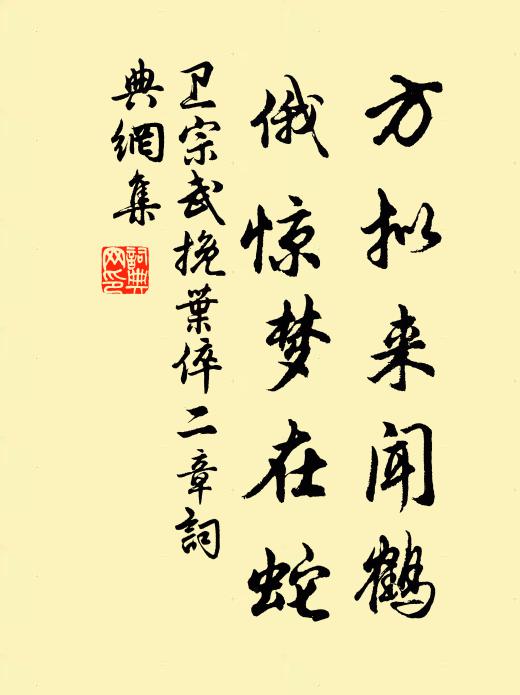 方拟来闻鹤
俄惊梦在蛇
卫宗武挽葉倅二章詞
典網集
詞典
网印